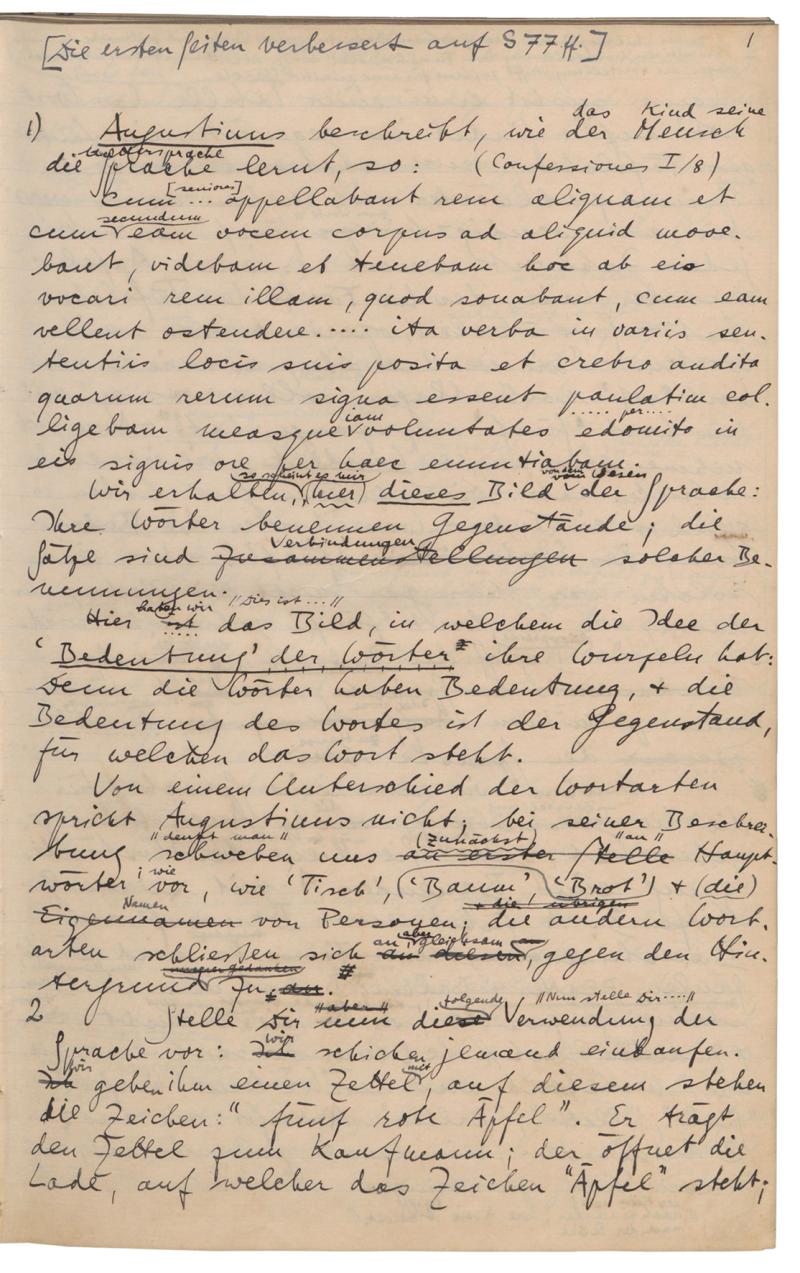 [Die ersten Seiten verbessert auf S 77 ff.] 1
das Kind seine
1) Augustinus beschreibt, wie der Mensch
Muttersprache
die Sprache lernt, so: (Confessiones I/8)
[seniores]
cum ... appellabant rem aliquam et
secundum
cum eam vocem corpus ad aliquid move-
bant, videbam et tenebam hoc ab eis
vocari rem illam, quod sonabant, cum eam
vellent ostendere. .... ita verba in variis sen-
tentiis locis suis posita et crebro audita
quarum rerum signa essent paulatim col-
iam ..... per ....
ligebam measque voluntates edomito in
eis signis ore per haec enuntiabam.
so scheint es mir von dem vom Wesen
Wir erhalten, (hier) dieses Bild der Sprache:
Ihre Wörter benennen Gegenstände; die
Verbindungen
Sätze sind Zusammenstellungen solcher Be-
nennungen.
haben wir "Dies ist...."
Hier ist das Bild, in welchem die Idee der
'Bedeutung' der Wörter ihre Wurzeln hat:
Denn die Wörter haben Bedeutung, & die
Bedeutung des Wortes ist der Gegenstand,
für welchen das Wort steht.
Von einem Unterschied der Wortarten
spricht Augustinus nicht; bei seiner Beschrei-
"denkt man" (zunächst) "an"
bung schweben uns an erster Stelle Haupt-
wie
wörter vor, wie 'Tisch', ('Baum', 'Brot') & (die)
Namen & die übrigen
Eigennamen von Personen; die andern Wort-
an, aber gleichsam an
arten schliessen sich an diesen, gegen den Hin-
tergrund zu, an.
"aber" folgende "Nun stelle Dir...."
2 Stelle Dir nun diese Verwendung der
wir
Sprache vor: Ich schicken jemand einkaufen.
Wir mit
Ich geben ihm einen Zettel, auf diesem stehen
die Zeichen: "fünf rote Äpfel". Er trägt
den Zettel zum Kaufmann; der öffnet die
Lade, auf welcher das Zeichen "Äpfel" steht;